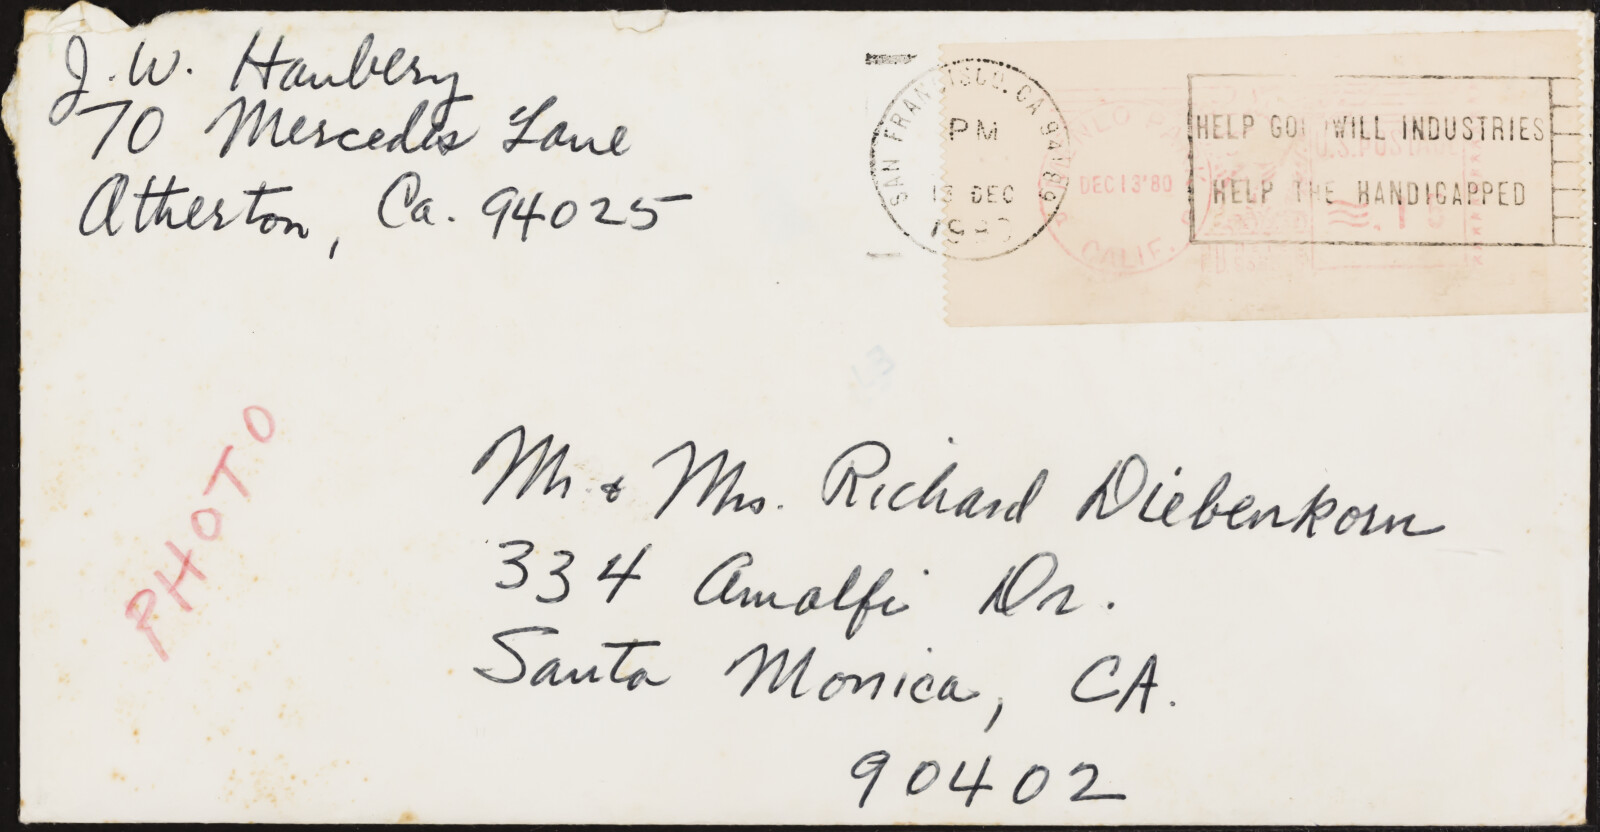 J. W. Haubery
70 Mercedes Lane
Atherton, Ca. 94025
SAN FRANCISCO, CA
PM
13 DEC
HELP GOODWILL INDUSTRIES
HELP THE HANDICAPPED
MENLO PARK
U.S. POSTAGE
DEC 13 '80
CALIF.
PHOTO
Mr. & Mrs. Richard Diebenkorn
334 Amalfi Dr.
Santa Monica, CA.
90402